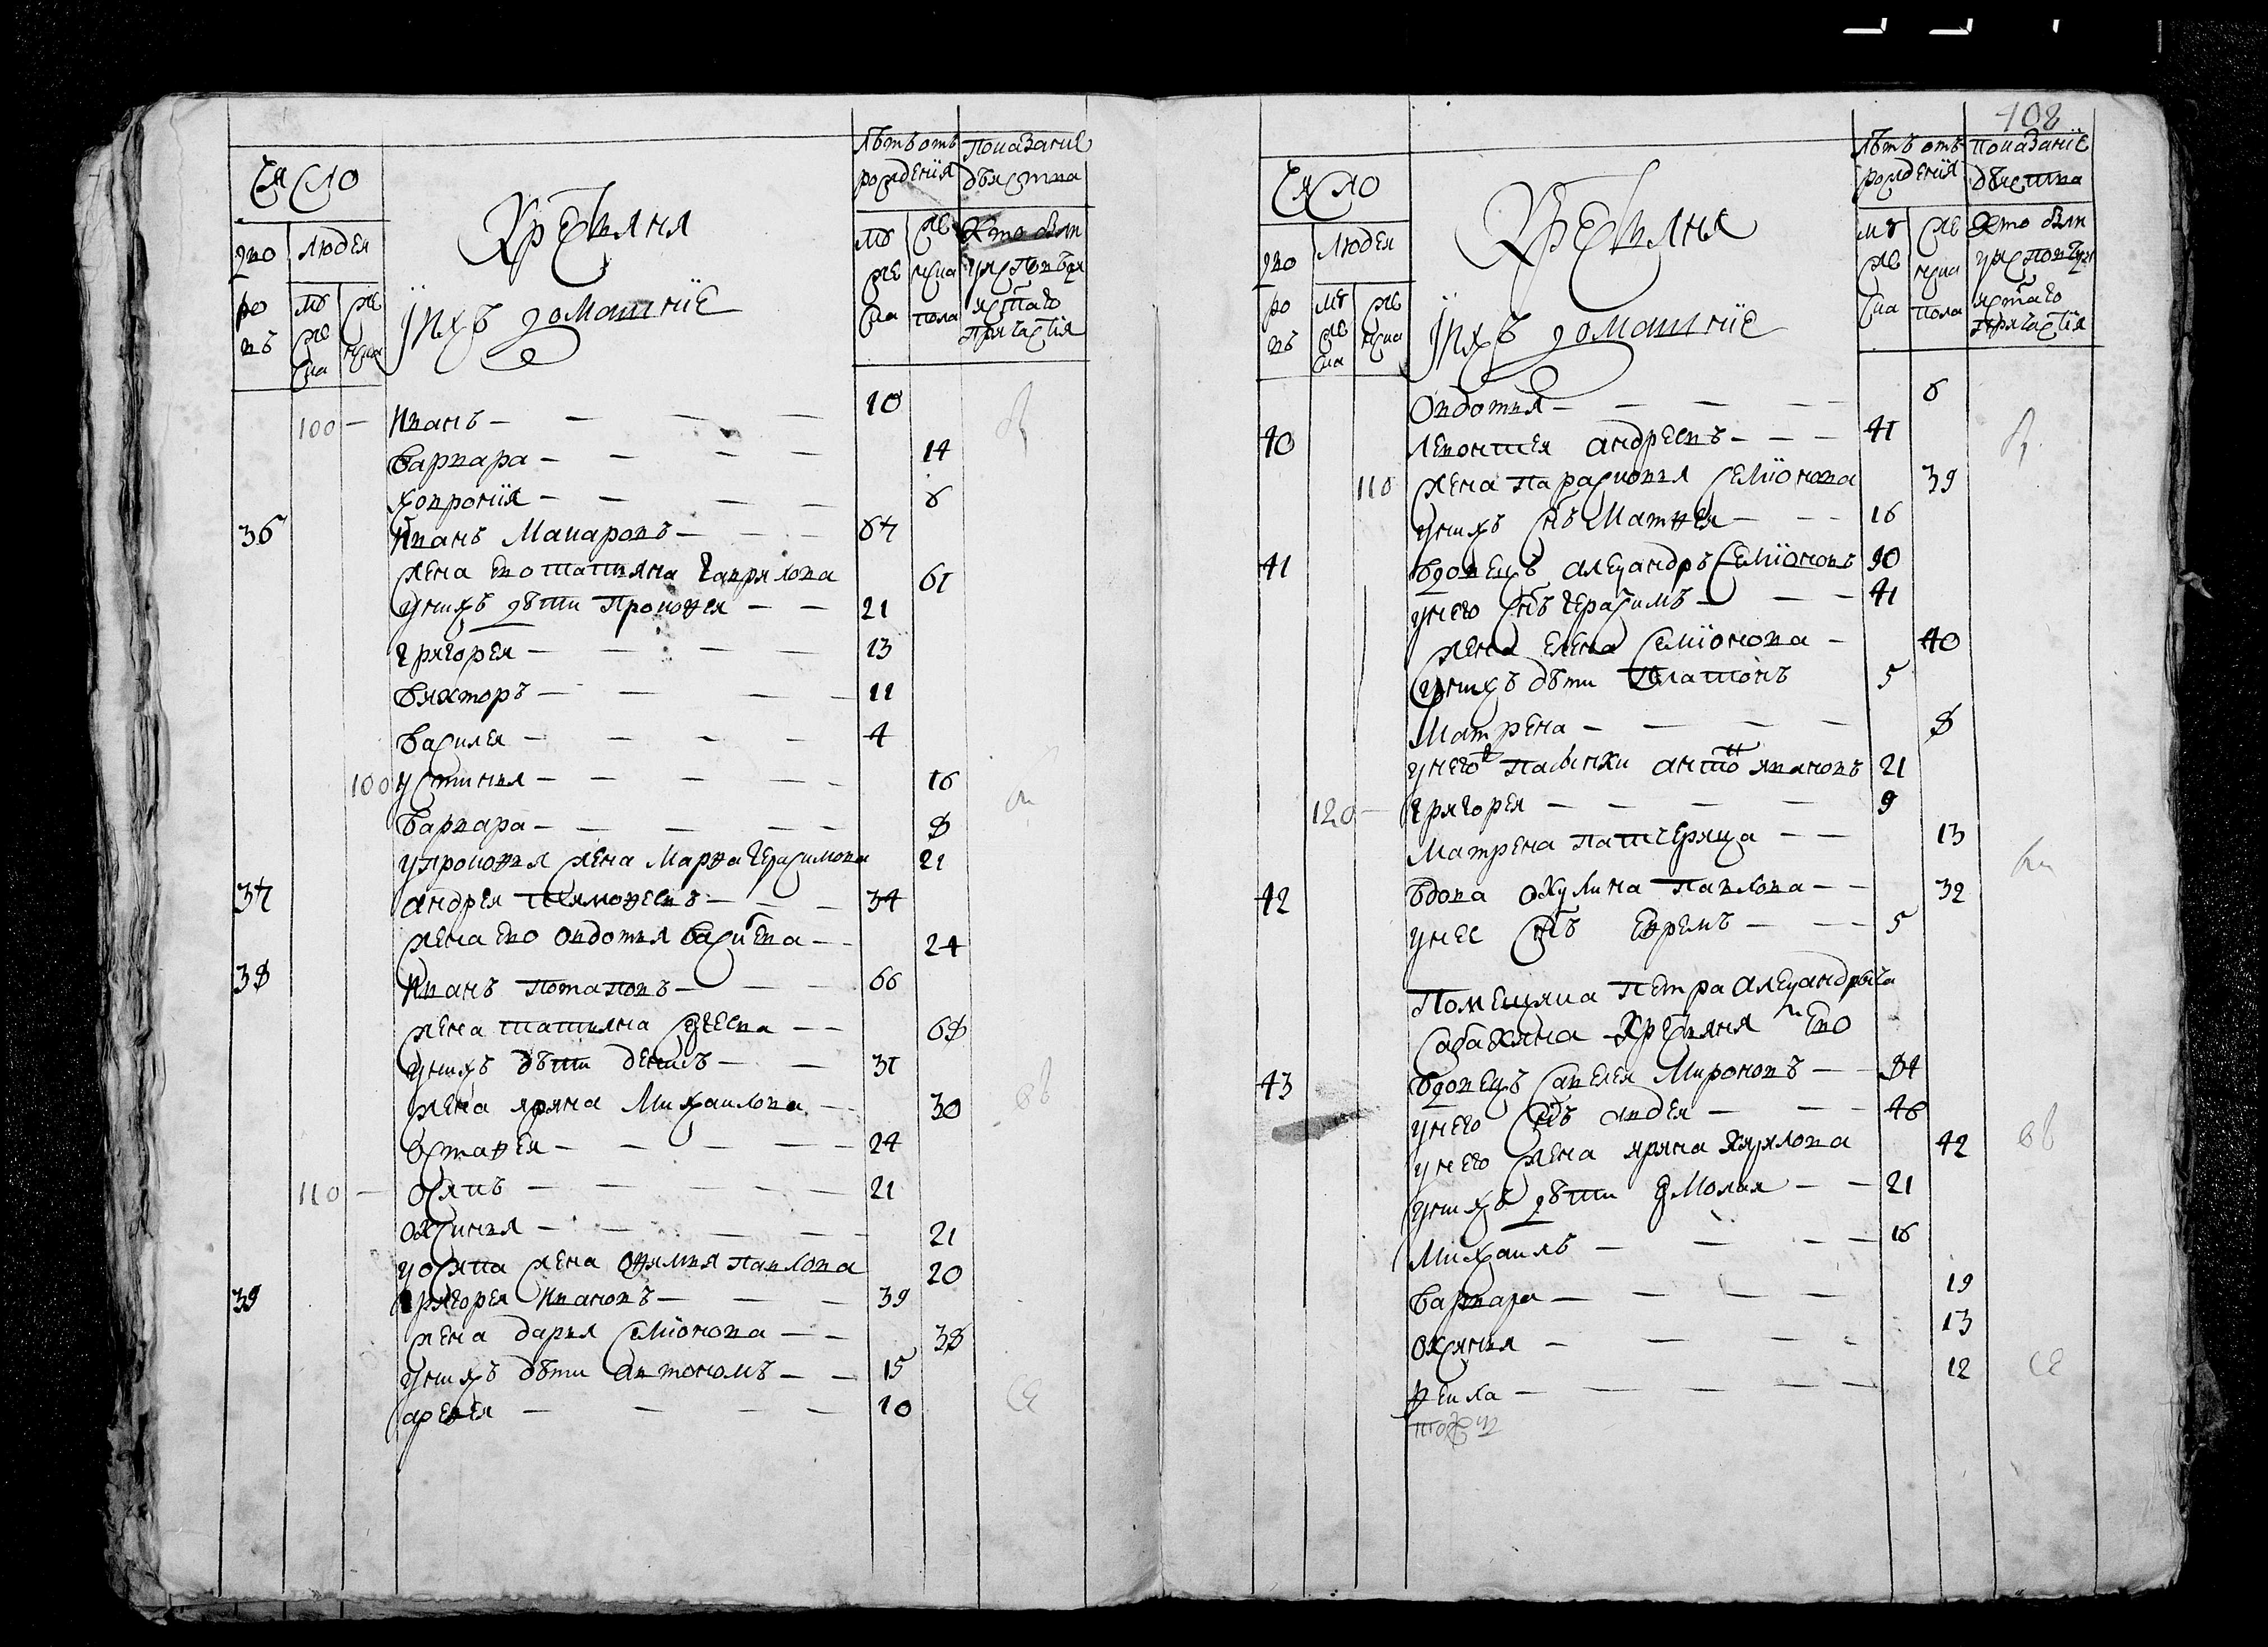 Число
дво
ро
въ
людей
му
же
ска
же
нска
Крестьяня
И ихъ домашние
Лѣтъ отъ
рождения
му
же
ска
же
нска
пола
Показание
действа
Кто были
у исповеди
и святаго
причастия
100 — Иванъ — 10
Варвара — 14
Ховрония — 6
36 Иванъ Макаровъ — 67
жена ево Татьяна Гаврилова 61
у нихъ дѣти Прокофей — 21
Григорей — 13
Виктор — 11
Василей — 4
100 Устинья — 16
Варвара — 8
у Прокофья жена Марфа Герасимова 21
37 Андрей Тимофеевъ — 34
жена ево Овдотья Васильева — 24
38 Иванъ Потаповъ — 66
жена Татьяна Сергеева — 68
у нихъ дѣти Денисъ — 31
жена Ирина Михаилова — 30
Остафей — 24
110 — Осипъ — 21
Оксинья — 21
у Осипа жена Офимья Павлова 20
39 Григорей Ивановъ — 39
жена Дарья Семионова — 38
у нихъ дѣти Антономъ — 15
Арефей — 10
108
Число
дво
ро
въ
людей
му
же
ска
же
нска
Крестьяня
И ихъ домашние
Лѣтъ отъ
рождения
му
же
ска
же
нска
пола
Показание
действа
Кто были
у исповеди
и святаго
причастия
Овдотья — 6
40 Левонтей Андреевъ — 41
110 жена Парасковья Семионова 39
у нихъ снъ Матфей — 16
41 Вдовецъ Александръ Семионовъ 90
у него снъ Герасимъ — 41
жена Елена Семионова — 40
у нихъ дѣти Платонъ 5
Матрена — 8
у него пасынки Антон Ивановъ 21
120 — Григорей — 9
Матрена патчерица — 13
42 Вдова Окулина Павлова — 32
у нее снъ Ефремъ — 5
Помещика Петра Александрыча
Сабакина крестьяня ево
43 Вдовецъ Савелей Мироновъ — 84
у него снъ Авдей — 46
у него жена Ирина Кирилова 42
у нихъ дѣти Ермолай — 21
Михаилъ — 16
Варвара — 19
Оксинья — 13
Фекла — 12